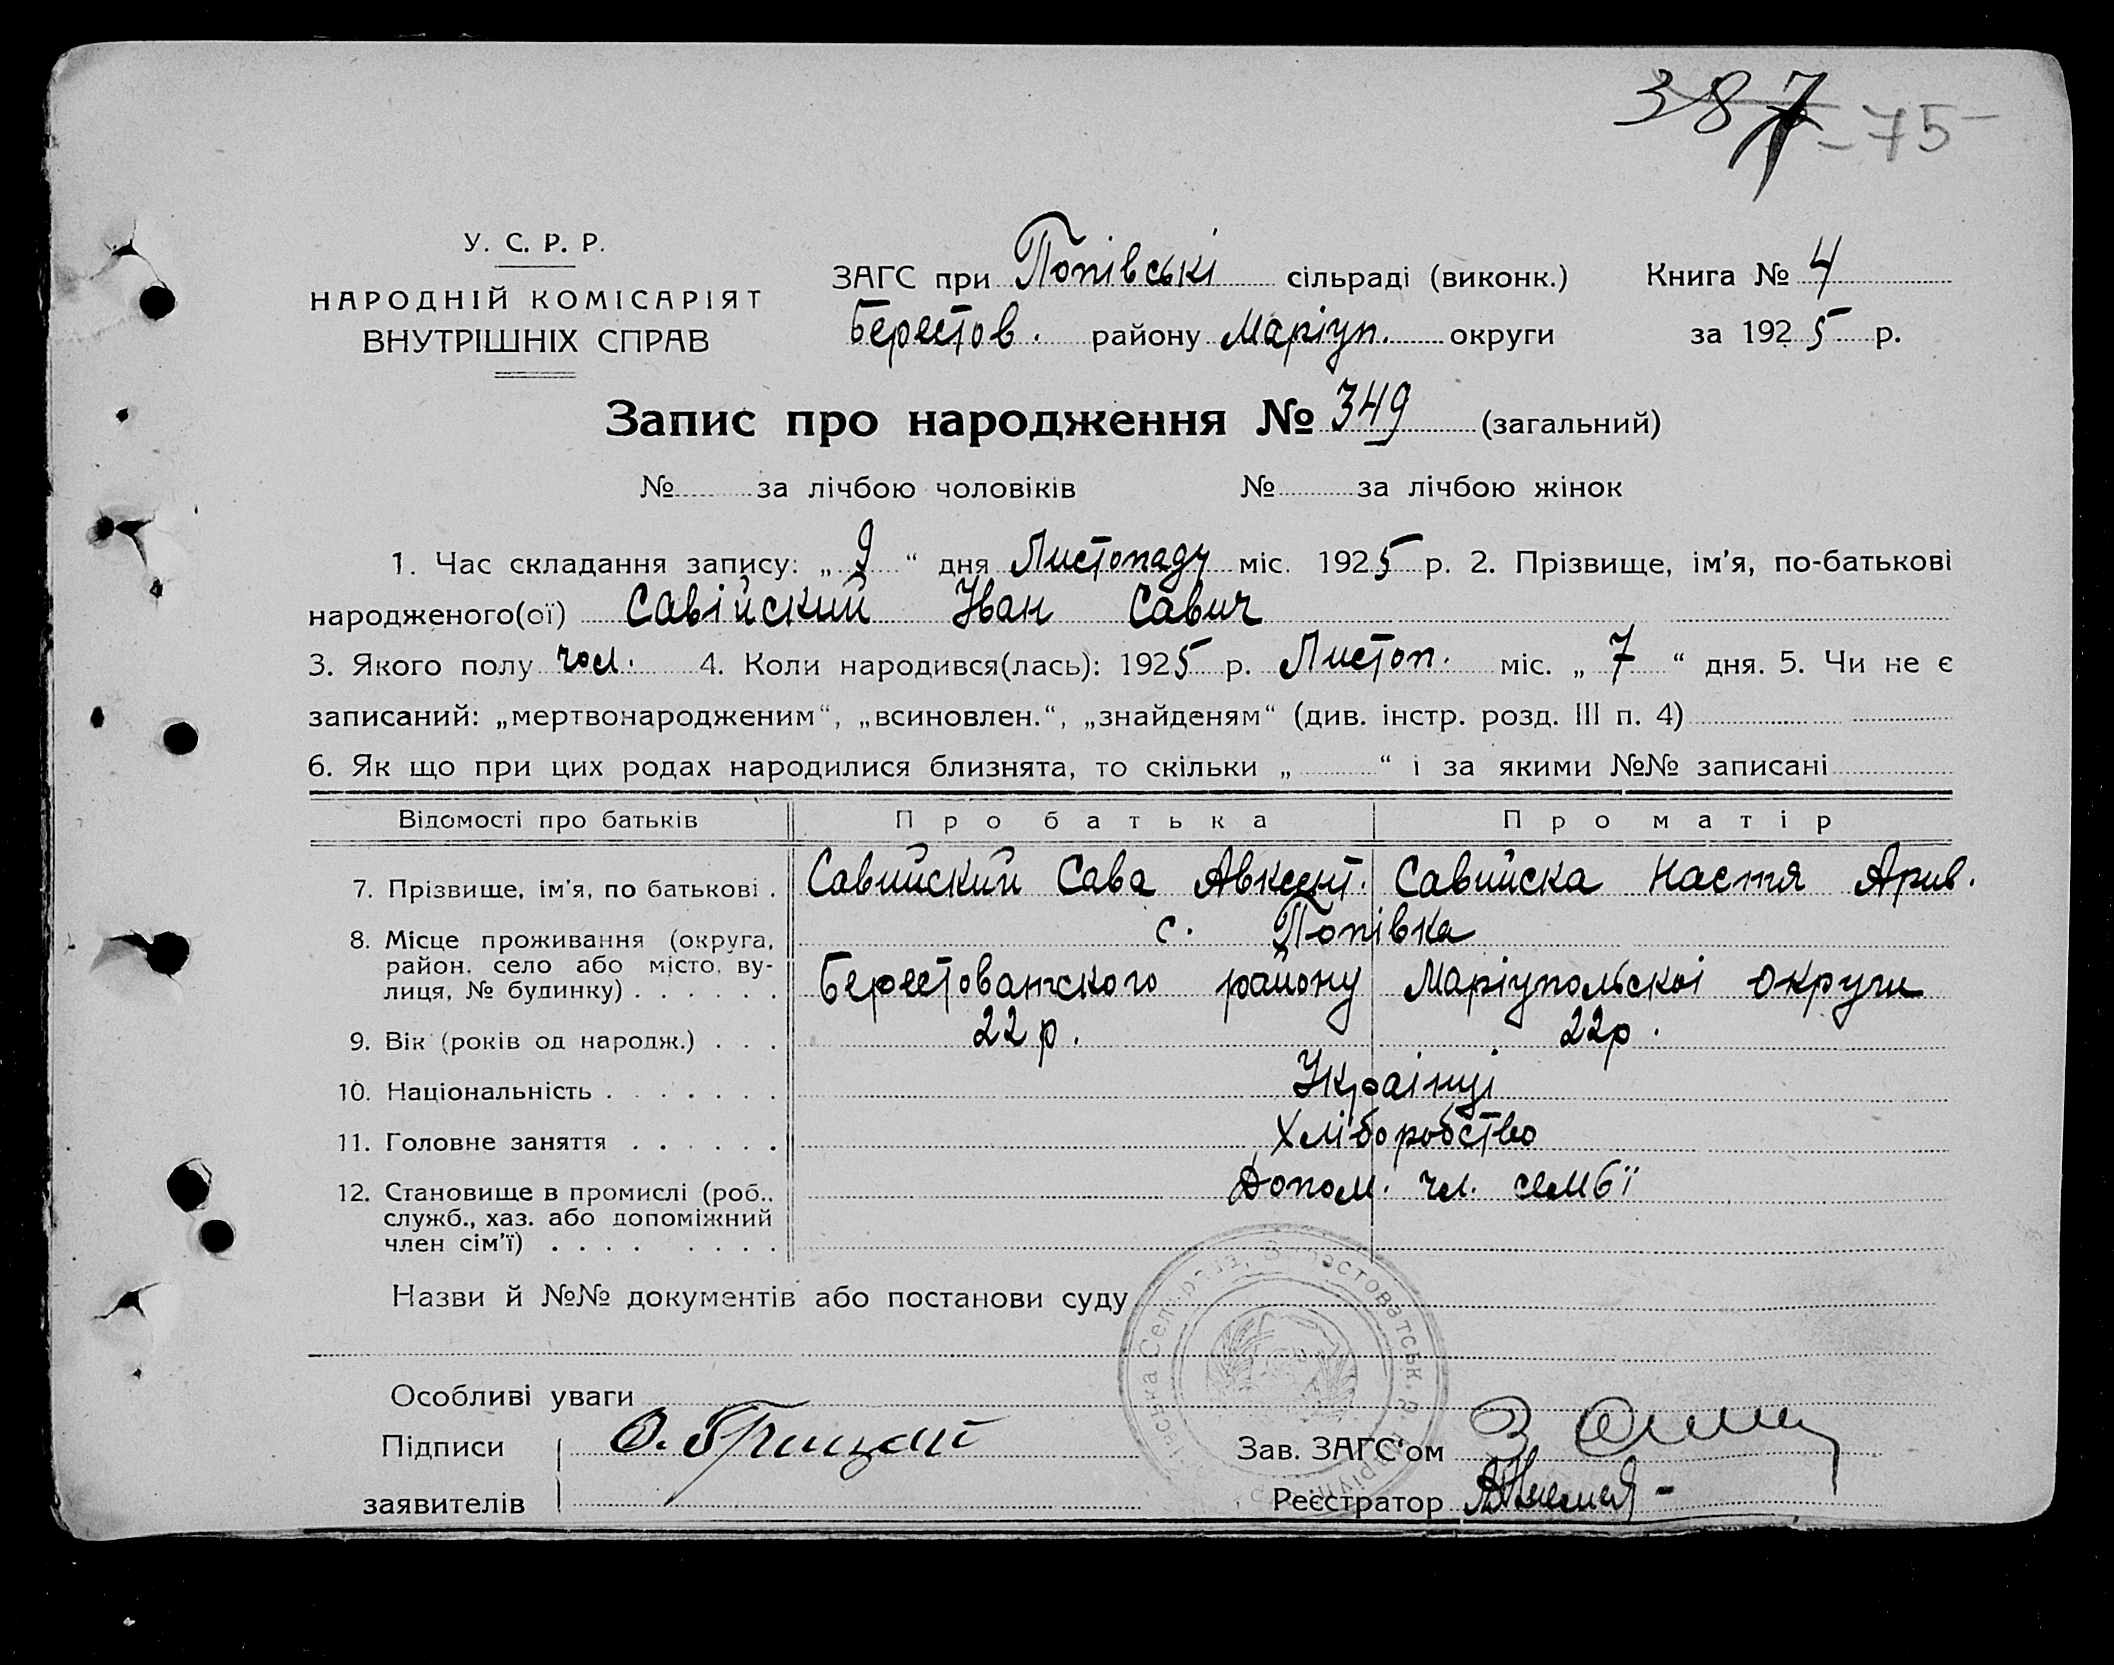 387 - 75
У. С. Р. Р.
НАРОДНІЙ КОМІСАРІЯТ
ВНУТРІШНІХ СПРАВ
ЗАГС при Попівські сільраді (виконк.) Книга № 4
Берестов. району Маріуп. округи за 1925 р.
Запис про народження № 349 (загальний)
№ за лічбою чоловіків № за лічбою жінок
1. Час складання запису: „ 9 “ дня Листопаду міс. 1925 р. 2. Прізвище, ім’я, по-батькові
народженого(ої) Савійский Іван Савич
3. Якого полу чол. 4. Коли народився(лась): 1925 р. Листоп. міс. „ 7 “ дня. 5. Чи не є
записаний: „мертвонародженим“, „всиновлен.“, „знайденям“ (див. інстр. розд. III п. 4)
6. Як що при цих родах народилися близнята, то скільки „ “ і за якими №№ записані
Відомості про батьків Про батька Про матір
7. Прізвище, ім’я, по батькові . Савийский Сава Авксент. Савийска Настя Арив.
8. Місце проживання (округа, с. Попівка
район, село або місто, ву-
лиця, № будинку) . . . . . . Берестованского району Маріупольскоі округи
9. Вік (років од народж.) . . . 22 р. 22 р.
10. Національність . . . . . . . Украінці
11. Головне заняття . . . . . . Хліборобство
12. Становище в промислі (роб., Допом. чл. сембї
служб., хаз. або допоміжний
член сім’ї) . . . . . . . .
Назви й №№ документів або постанови суду
Особливі уваги
Підписи О. Грицай Зав. ЗАГС‘ом
заявителів Реєстратор